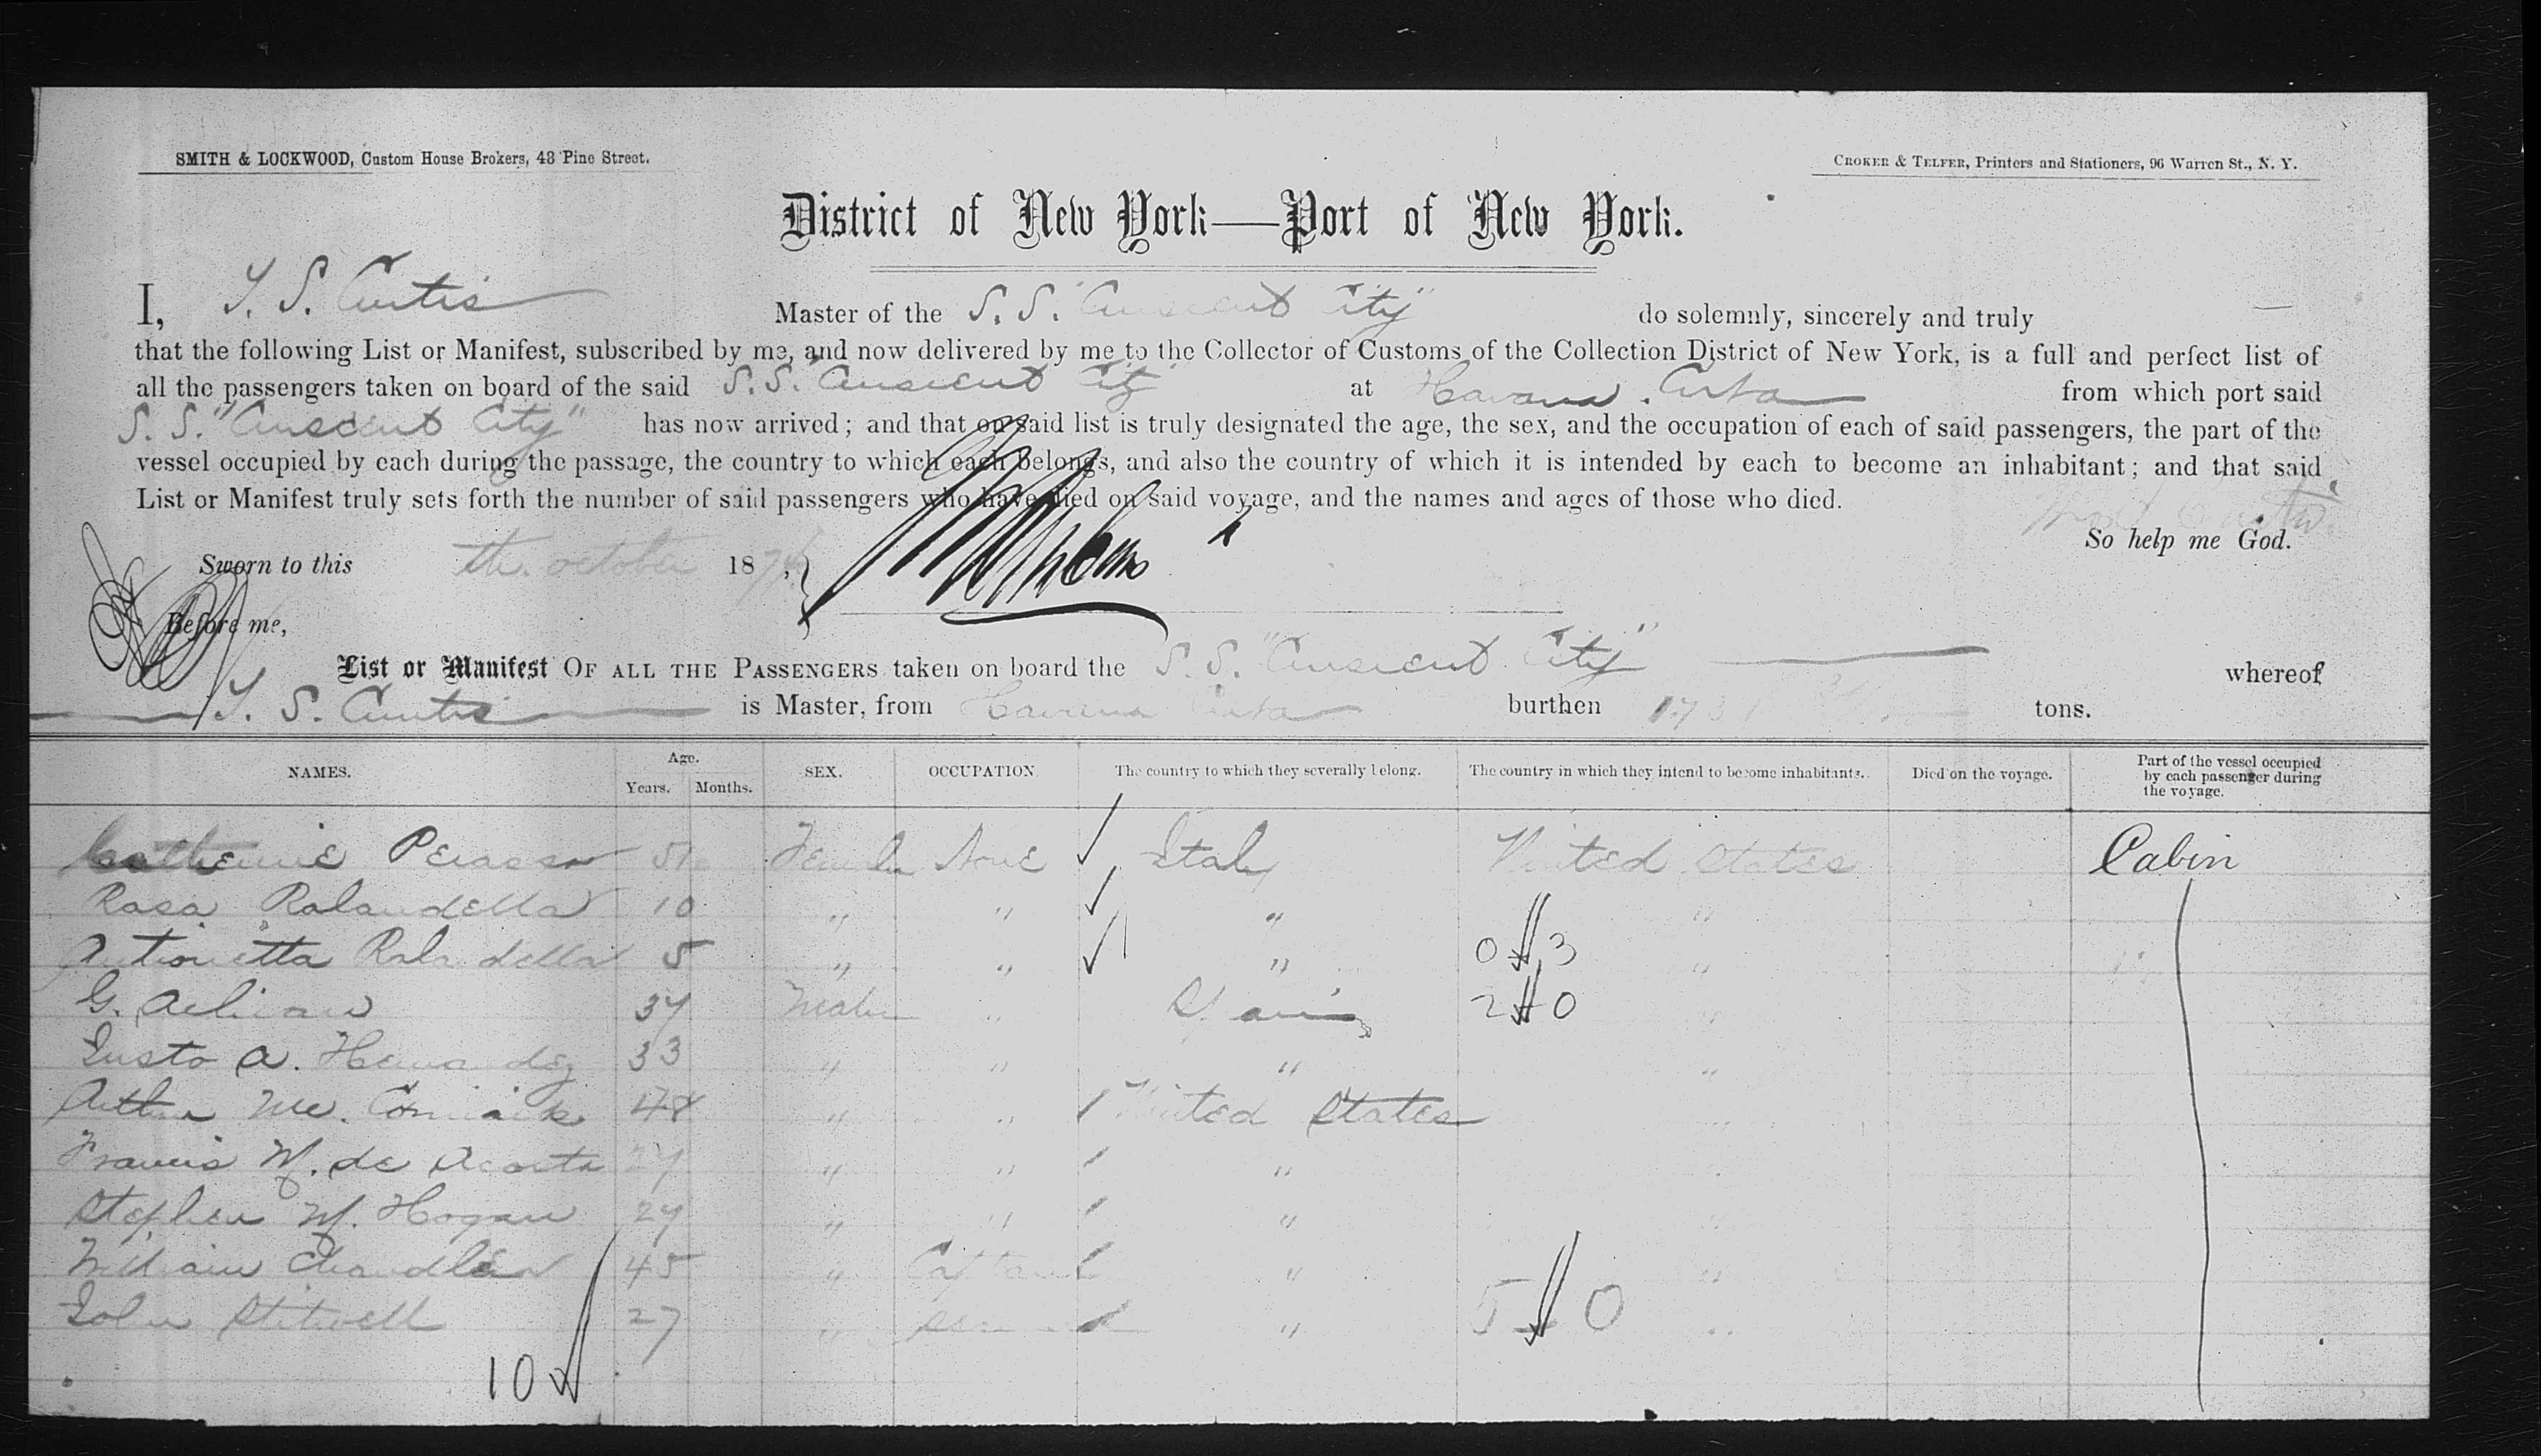 SMITH & LOCKWOOD, Custom House Brokers, 43 Pine Street.
CROKER & TELFER, Printers and Stationers, 96 Warren St., N. Y.
District of New York—Port of New York.
I, T. S. Curtis Master of the S. S. "Ancient City" do solemnly, sincerely and truly
that the following List or Manifest, subscribed by me, and now delivered by me to the Collector of Customs of the Collection District of New York, is a full and perfect list of
all the passengers taken on board of the said S. S. "Ancient City" at Havana. Cuba from which port said
S. S. "Ancient City" has now arrived; and that on said list is truly designated the age, the sex, and the occupation of each of said passengers, the part of the
vessel occupied by each during the passage, the country to which each belongs, and also the country of which it is intended by each to become an inhabitant; and that said
List or Manifest truly sets forth the number of said passengers who have died on said voyage, and the names and ages of those who died.
So help me God.
Sworn to this th. october 187
Before me,
List or Manifest OF ALL THE PASSENGERS taken on board the S. S. "Ancient City" whereof
T. S. Curtis is Master, from Havana Cuba burthen 1731 tons.
NAMES. Age. Years. Months. SEX. OCCUPATION. The country to which they severally belong. The country in which they intend to become inhabitants. Died on the voyage. Part of the vessel occupied by each passenger during the voyage.
Catherine Perasso 51 Female None Italy United States Cabin
Rosa Rolandella 10 " " " "
Antionetta Rolandella 5 " " " 0 3 "
G. 34 Male " Spain 2 0 "
Justo A. Hernandez 33 " " " "
Arthur Mc. Cormick 48 " " United States "
Francis M. de Acosta " " " "
Stephen M. Hogan 24 " " " "
William Chandler 45 " Captain " "
John Stitwell 27 " " 5 0 "
10